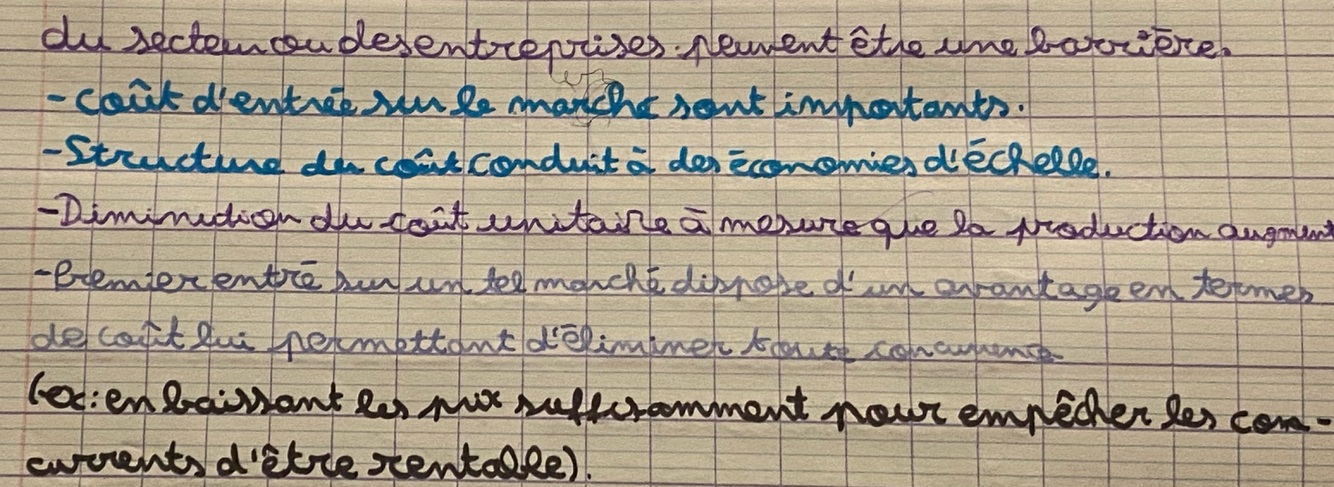 du secteur ou des entreprises peuvent être une barrière.
- coût d'entrée sur le marché sont importants.
- Structure du coût conduit à des économies d'échelle.
- Diminution du coût unitaire à mesure que la production augment
- Premier entré sur un tel marché dispose d'un avantage en termes
de coût lui permettant d'éliminer toute concurrence
(ex: en baissant les prix suffisamment pour empêcher les con-
currents d'être rentable).